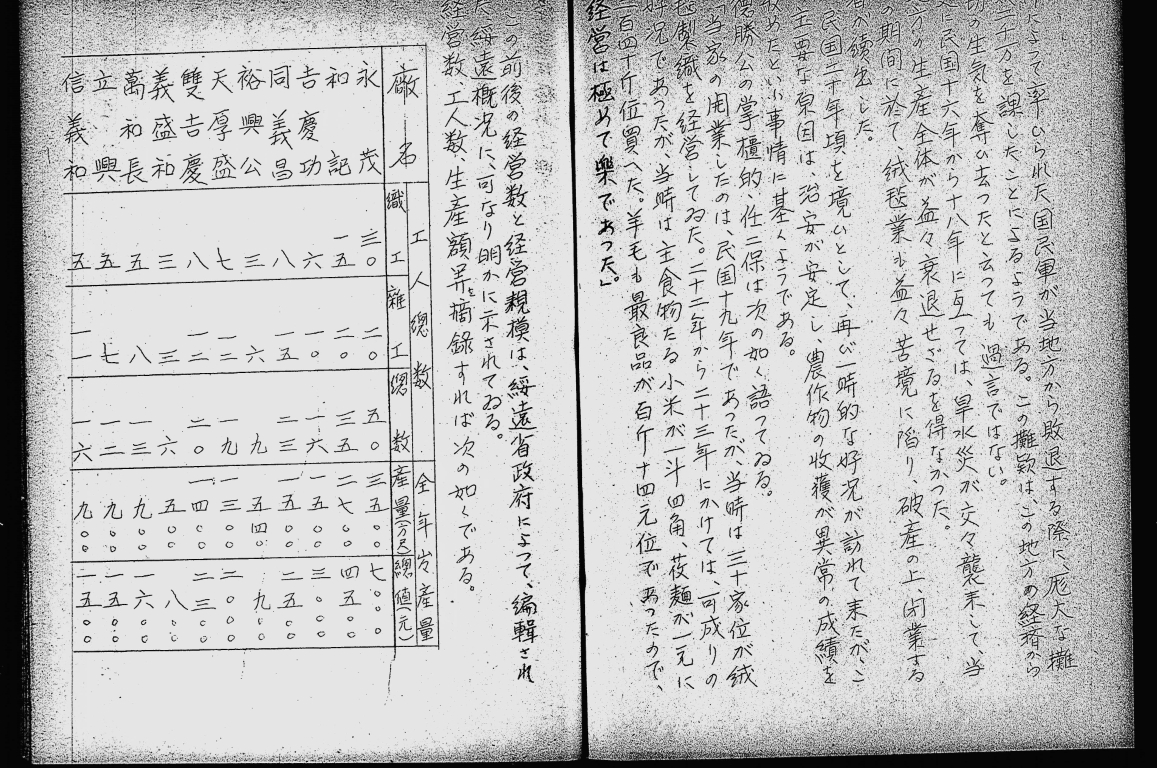 によって率ひられた国民軍が当地方から敗退する際に、厖大な攤
十万を課したことによるようである。この攤欵は、この地方の経済から
の生気を奪ひ去ったと云っても過言ではない。
に民国十六年から十八年に亙っては、旱水災が交々襲来して、当
方の生産全体が益々衰退せざるを得なかった。
の期間に於て、絨毯業も益々苦境に陥り、破産の上、閉業する
者が續出した。
民国二十年頃を境ひとして、再び一時的な好况が訪れて来たが、こ
主要な原因は、治安が安定し、農作物の收獲が異常の成績を
收めたといふ事情に基くようである。
優勝公の掌櫃的、任二保は次の如く語ってゐる。
「当家の開業したのは、民国十九年であったが、当時は三十家位が絨
毯製織を経営してゐた。二十二年から二十三年にかけては、可成りの
好况であったが、当時は主食物たる小米が一斗四角、莜麺が一元に
二百四十斤位買へた。羊毛も最良品が百斤十四元位であったので、
経営は極めて樂であった。」
この前後の経営数と経営規模は、綏遠省政府によって、編輯され
た綏遠概况に、可なり明かに示されてゐる。
経営数、工人数、生産額等を摘録すれば次の如くである。
廠名 工人總数 織工 雜工 總数 全年出産量 産量(方尺) 總値(元)
永茂 三〇 二〇 五〇 三五〇〇 七〇〇〇
和記 一五 二〇 三五 二七〇〇 四五〇〇
吉慶功 六 一〇 一六 一五〇〇 三〇〇〇
同義昌 八 一五 二三 一五〇〇 二五〇〇
裕興公 三 六 九 五四〇 九〇〇
天厚盛 七 一二 一九 一三〇〇 二〇〇〇
雙吉慶 八 一二 二〇 一四〇〇 二三〇〇
義盛和 三 三 六 五〇〇 八〇〇
萬和長 五 八 一三 九〇〇 一六〇〇
立興 五 七 一二 九〇〇 一五〇〇
信義和 五 一一 一六 九〇〇 一五〇〇